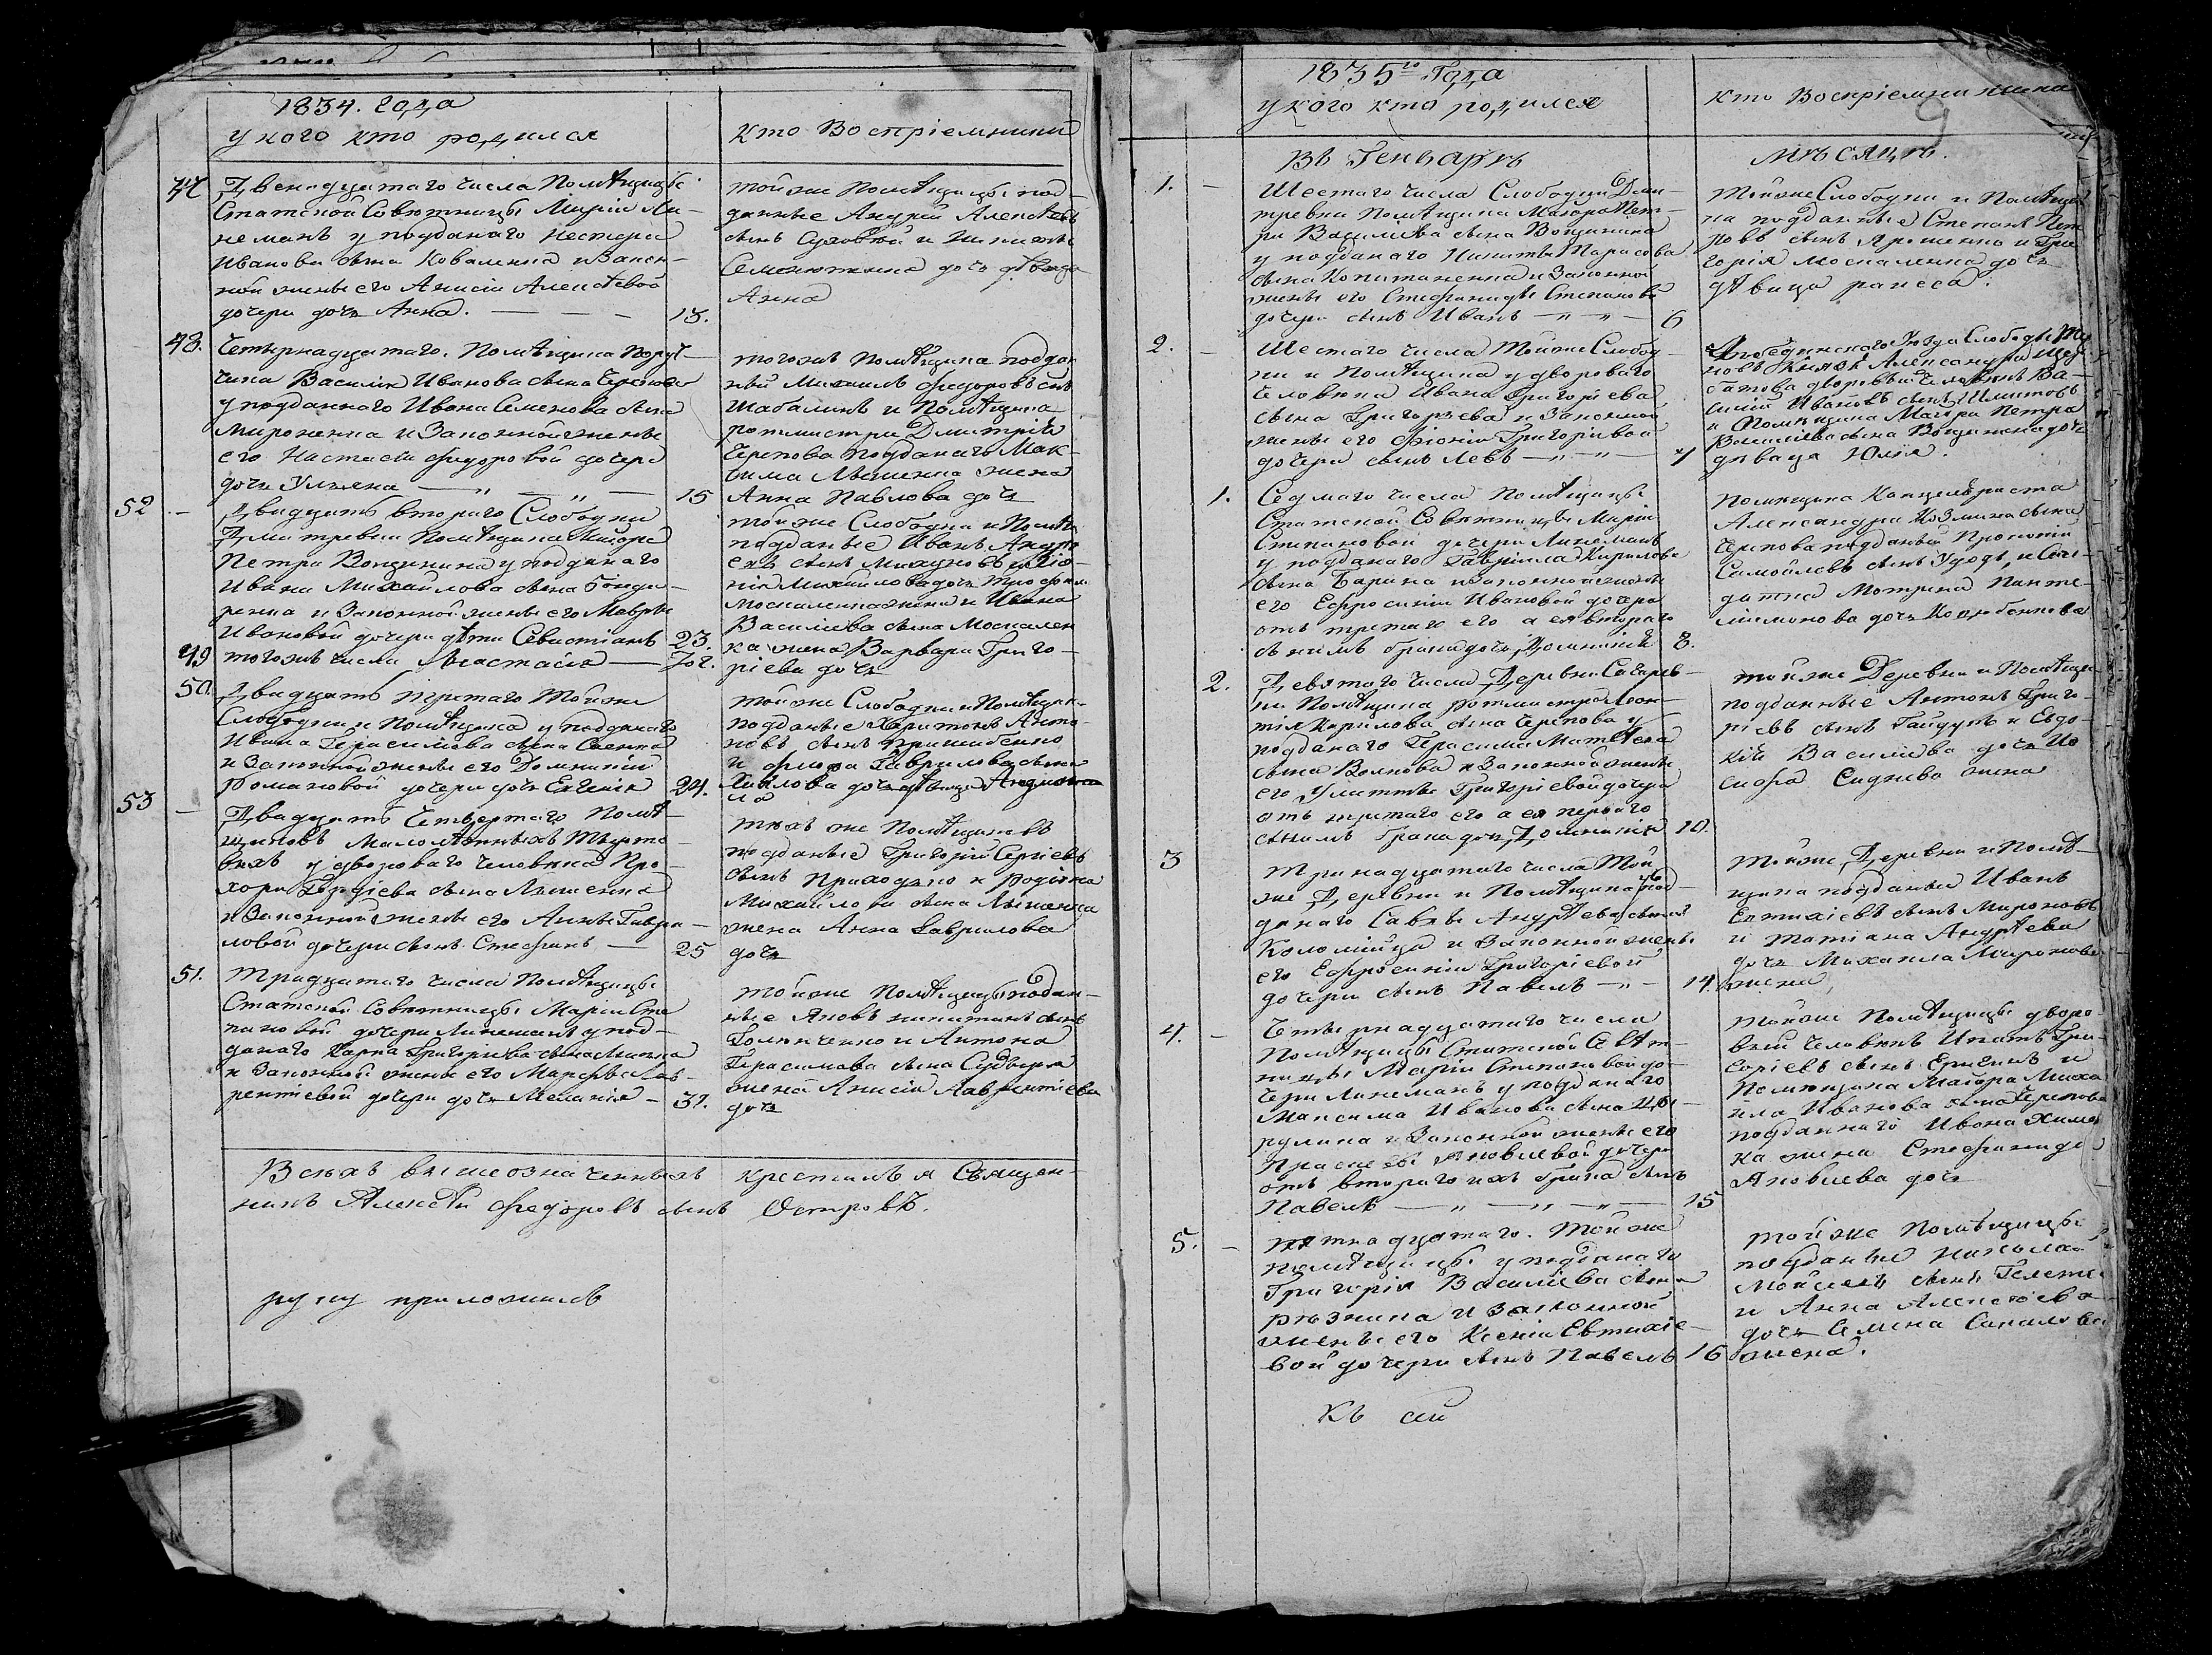 1834. года
у кого кто родился
кто Воспріемники
47.
Двенадцатаго числа Помѣщицы
Статской Совѣтницы Маріи Ли-
неманъ у подданаго Нестера
Иванова сына Коваленка и Закон-
ной жены его Анисіи Алексѣевой
дочери дочь Анна. 13.
тойже Помѣщицы под-
данные Андрей Алексѣевъ
сынъ и
Семенюткина дочь дѣвица
Анна
48.
Четырнадцатаго. Помѣщика Пору-
чика Василія Иванова сына Черепова
у подданнаго Ивана Семенова сына
Мироненка и Законной жены
его Настасіи Федоровой дочери
дочь Ульяна 15
тогожъ Помѣщика поддан
ный Михаилъ Федоровъ сынъ
Шабалинъ и Помѣщика
ротмистра Дмитрія
Черепова подданаго Мак-
сима Ляшенка жена
Анна Павлова дочь
52
Двадцать втораго Слободки
Дмитревки Помѣщика Маіора
Петра Вощинина у подданаго
Ивана Михайлова сына Бонда-
ренка и Законной жены его Мавры
Ивановой дочери дѣти Севастіанъ 23.
49 тогожъ числа Анастасія
тойже Слободки и Помѣщ
подданые Иванъ Андре
евъ сынъ и
Михайлова дочь Трофима
Москаленка жена и Ивана
Василіева сына Москален
ка жена Варвара Григо-
ріева дочь
50.
Двадцать третаго Тойже
Слободки и Помѣщика у подданаго
Ивана Герасимова сына
и Законной жены его Домникіи
Романовой дочери дочь Евгенія 24.
тойже Слободки и Помѣщик
подданые Харитонъ Анто-
новъ сынъ
и Гаврилова сына
дочь дѣвица
53
Двадцать Четвертаго Помѣ
щиковъ Малолѣтныхъ
у двороваго человѣка Про-
хора Сергіева сына Ляшенка
и Законной жены его Анны Гаври-
ловой дочери сынъ Стефанъ 25
тѣхъ же Помѣщиковъ
подданые Григорій Сергіевъ
сынъ Приходько и Родіона
Михайлова сына Ляшенка
жена Анна Гаврилова
дочь
51.
Тридцатаго числа Помѣщицы
Статской Совѣтницы Маріи Сте
пановой дочери Линеманъ у под-
данаго Карпа Григоріева сына
и Законной жены его Марфы Лав-
рентіевой дочери дочь Меланія 31.
тойже Помѣщицы поддан-
ные Яковъ Никитинъ сынъ
и Антона
Герасимова сына
жена Анисія Лаврентіева
дочь
Всѣхъ вышеозначенныхъ крестилъ я Священ-
никъ Алексѣй Федоровъ сынъ Островъ.
руку приложилъ
1835го Года
у кого кто родился
кто Воспріемники
9
Въ Генварѣ Мѣсяцѣ.
1.
Шестаго числа Слободки Дми-
тревки Помѣщика Маіора Пет-
ра Василіева сына Вощинина
у подданаго Никиты Тарасова
сына и Законной
жены его Стефаниды Степановой
дочери сынъ Иванъ 6
тойже Слободки и Помѣщи
ка подданные Степанъ Пет
ровъ сынъ Ярошенко и Гри
горія Москаленка дочь
дѣвица раиса.
2.
Шестаго числа Тойже Слобод-
ки и Помѣщика у двороваго
Человѣка Ивана Григоріева
сына Григорьева и Законной
жены его Григоріевой
дочери сынъ Левъ 7
Уѣзда Слободы
Князя Александра
дворовый человѣкъ Ва-
силій Ивановъ сынъ
и Помѣщика Маіора Петра
Василіева сына Вощинина дочь
дѣвица Юлія.
1.
Седмаго числа Помѣщицы
Статской Совѣтницы Маріи
Степановой дочери Линеманъ
у подданаго Гаврила Кирилова
сына и законной жены
его Ефросиніи Ивановой дочери
отъ третаго его а ея втораго
сынимъ брака дочь Домникія 8.
Помѣщика Канцеляриста
Александра Козмина сына
Черепова подданый Прокопій
Самойловъ сынъ и
Мотрина Панте-
лимонова дочь
2.
Девятаго числа Деревни
Помѣщика ротмистра Леон-
тія Кирилова сына Черепова у
подданаго Герасима Матвѣева
сына Волкова и Законной жены
его Улитты Григоріевой дочери
отъ третаго его а ея перваго
сынимъ брака дочь Домникія 10.
тойже Деревни и Помѣщи
подданные Антонъ Григо-
ріевъ сынъ Гайдукъ и Евдо-
кія Василіева дочь Ио
сифа жена
3
Тринадцатаго числа Той
же Деревни и Помѣщика у под-
данаго Савы Андрѣева сына
Коломійца и Законной жены
его Ефросиніи Григоріевой
дочери сынъ Павелъ 14.
тойже Деревни и Помѣ
щика подданый Иванъ
Евтихіевъ сынъ Мироновъ
и Татіана Андрѣева
дочь Михаила Миронова
жена,
4.
Четырнадцатаго числа
Помѣщицы Статской Совѣт-
ницы Маріи Степановой до-
чери Линеманъ у подданаго
Максима Иванова сына Цы-
рулика и Законной жены его
Прасковьи Яковлевой дочери
отъ втораго ихъ брака сынъ
Павелъ 15
тойже Помѣщицы дворо-
вый человѣкъ Игнатъ Гри-
горіевъ сынъ и
Помѣщика Маіора Миха
ила Иванова сына Черепова
подданнаго Ивана
ка жена Стефанида
Яковлева дочь
5.
пятнадцатаго. Тойже
помѣщицы у подданаго
Григорія Василіева сына
Рѣзника и Законной
жены его Ксеніи Евтихіе-
вой дочери сынъ Павелъ 16
тойже Помѣщицы
подданые Николай
Мойсеевъ сынъ
и Анна Алексѣева
дочь Семена
жена.
Къ сей